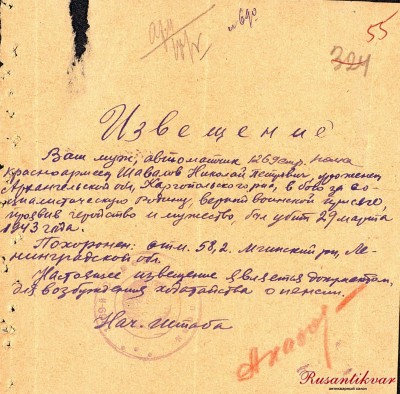 55
324
Извещение
Ваш муж, автоматчик 1269 стр. полка
красноармеец Шавалов Николай Петрович, уроженец
Архангельской обл, Каргопольского р-на, в бою за со-
циалистическую Родину, верный воинской присяге,
проявив геройство и мужество, был убит 29 марта
1943 года.
Похоронен: отм. 58,2 Мгинский р-н, Ле-
нинградской обл.
Настоящее извещение является документом,
для возбуждения ходатайства о пенсии.
Нач. штаба
Rusantikvar